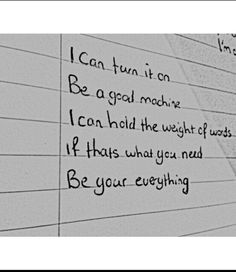 I'm
I Can turn it on
Be a good machine
I can hold the weight of words
if thats what you need
Be your everything